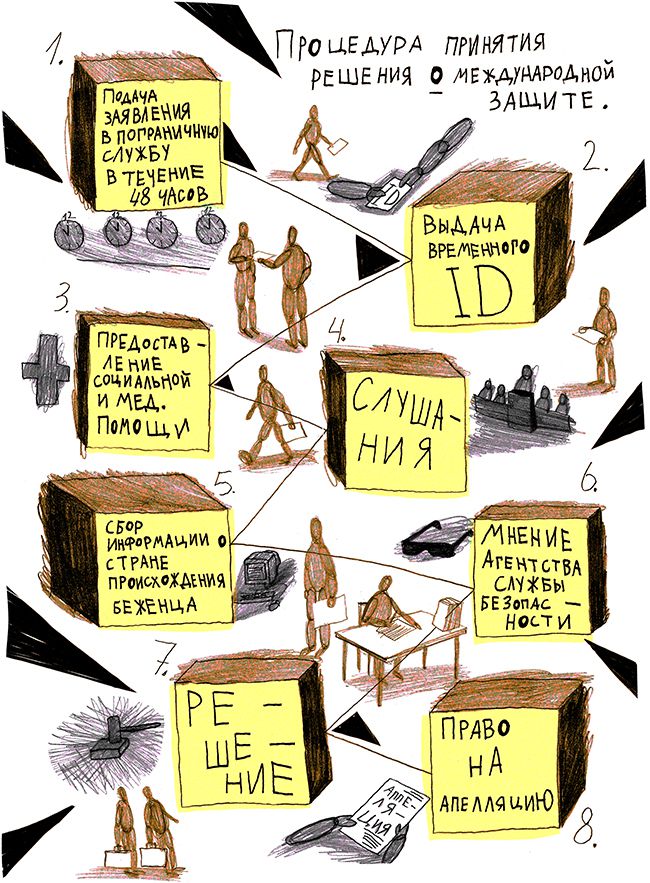 Процедура принятия
решения о международной
защите.
1.
Подача
заявления
в пограничную
службу
в течение
48 часов
12 12 12 12
ID
2.
Выдача
временного
ID
3.
Предостав-
ление
социальной
и мед.
помощи
4.
Слуша-
ния
5.
Сбор
информации о
стране
происхождения
беженца
6.
Мнение
Агентства
службы
безопас-
ности
7.
Ре-
ше-
ние
8.
Право
на
апелляцию
Аппе-
ля-
ция